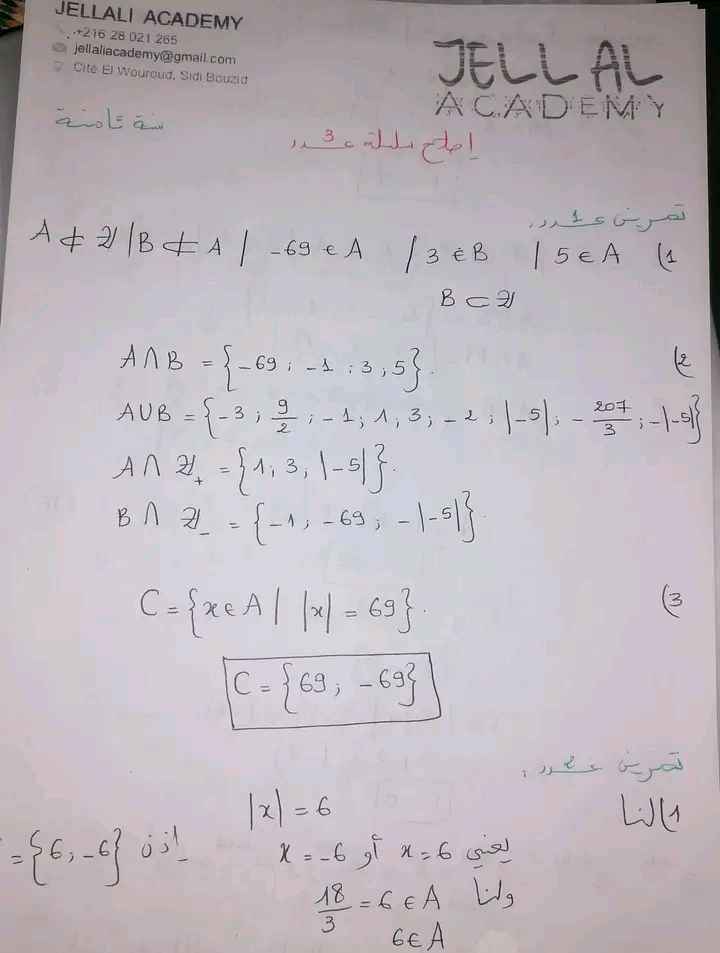 JELLALI ACADEMY
+216 28 021 265
jellaliacademy@gmail.com
Cité El Wouroud, Sidi Bouzid
JELLAL
ACADEMY
سنة ثامنة
إصلاح سلسلة عدد 3
تمرين عدد 1:
1) 5 ∈ A | 3 ∈ B | -69 ∈ A | B ⊄ A | A ⊄ ℤ
B ⊂ ℤ
2) A∩B = {-69 ; -1 ; 3 ; 5}.
A∪B = {-3 ; 9/2 ; -1 ; 1 ; 3 ; -2 ; |-5| ; -207/3 ; -|-5|}
A ∩ ℤ₊ = {1 ; 3 ; |-5|}.
B ∩ ℤ₋ = {-1 ; -69 ; -|-5|}.
3) C = {x ∈ A | |x| = 69}.
C = {69 ; -69}
تمرين عدد 2:
1) لنا |x| = 6
يعني x = 6 أو x = -6 إذن = {6 ; -6}
ولنا 18/3 = 6 ∈ A
6 ∈ A